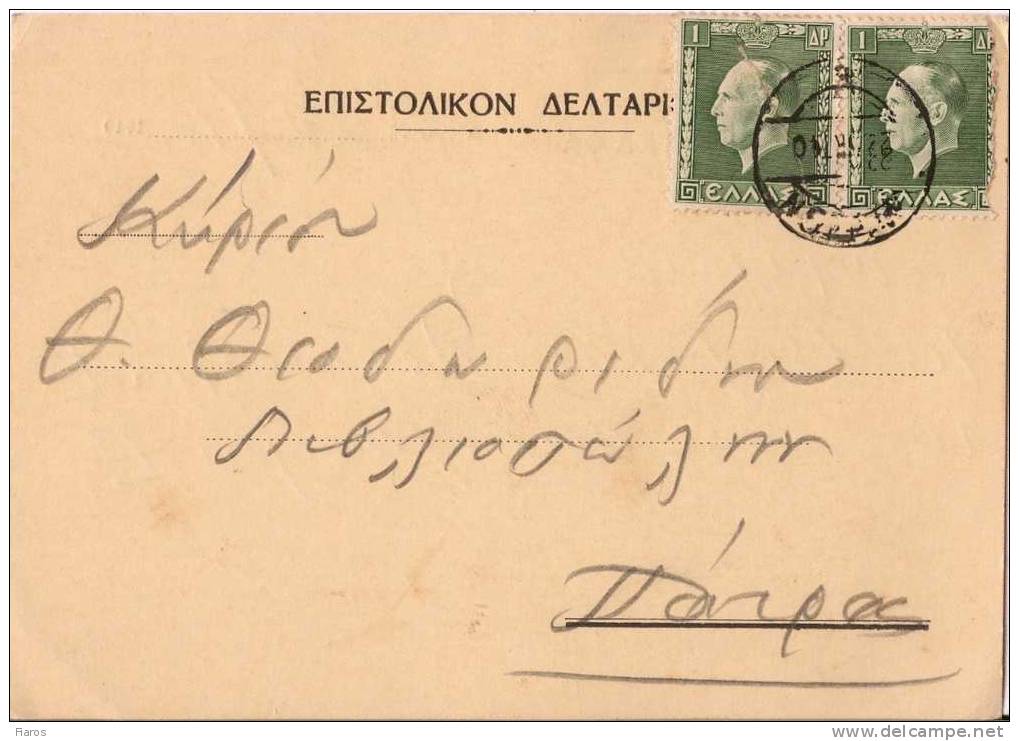 1 ΔΡ 1 ΔΡ
ΕΠΙΣΤΟΛΙΚΟΝ ΔΕΛΤΑΡΙ
ΕΛΛΑΣ ΕΛΛΑΣ
Κύριον
Θ. Θεοδωρίδην
Βιβλιοπώλην
Πάτρας
Πaros
delcampe.net